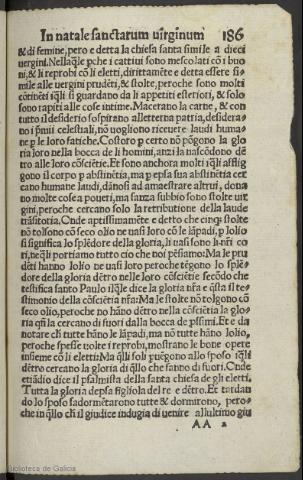 In natale sanctarum virginum 186
& di femine, pero e detta la chiesa santa simile a dieci
vergini. Nellaq̃le pche i cattiui sono mescolati cõ i buo
ni, & li reprobi cõ li eletti, dirittamẽte e detta essere si-
mile alle vergini prudẽti, & stolte, peroche sono molti
cõtinẽti iq̃li si guardano da li appetiti esteriori, & solo
sono rapiti alle cose intime. Macerano la carne, & con
tutto il desiderio sospirano alletterna patria, desidera-
no i pmii celestiali, nõ vogliono riceuere laudi huma-
ne p le loro fatiche. Costoro p certo nõ põgono la glo
ria loro nella bocca de li homini, anzi la nascõdono dẽ
tro alle loro cõsciẽtie. Et sono anchora molti iq̃li afflig
gono il corpo p abstinẽtia, ma p epsa sua abstinẽtia cer
cano humane laudi, dãnosi ad amaestrare altrui, dona-
no molte cose a poueri, ma sanza subbio sono stolte uir
gini, peroche cercano solo la retributione della laude
trãsitoria. Onde aptissimamẽte e detto che cinq; stolte
nõ tolsono cõ seco olio ne uasi loro cõ le lãpadi, p lolio
si significa lo splẽdore della gloria, li uasi sono li nr̃i co
ri, neq̃li portiamo tutto cio che noi pẽsiamo: Ma le pru
dẽti hanno lolio ne uasi loro peroche tẽgono lo splẽ-
dore della gloria dẽtro nelle loro cõsciẽtie secõdo che
testifica santo Paulo ilq̃le dice la gloria nr̃a e q̃sta il te-
stimonio della cõsciẽtia nr̃a: Ma le stolte nõ tolgono cõ
seco olio, peroche no hãno dẽtro nella cõsciẽtia la glo-
ria q̃n la cercano di fuori dalla bocca de pssimi. Et e da
notare ch̃ tutte hãno le lãpadi, ma nõ tutte hãno lolio,
peroche spesse uolte i reprobi, mostrano le bone opere
insieme cõ li eletti: Ma q̃lli soli puẽgono allo sposo iq̃li
dẽtro cercano la gloria di q̃llo che fanno di fuori. Onde
etiãdio dice il psalmista della santa chiesa de gli eletti.
Tutta la gloria depsa figliola del re e dẽtro. Et tardan
do lo sposo sadormẽtarono tutte & dormirono, pero-
che in q̃llo ch̃ il giudice indugia di uenire alultimo giu
AA 2
Biblioteca de Galicia